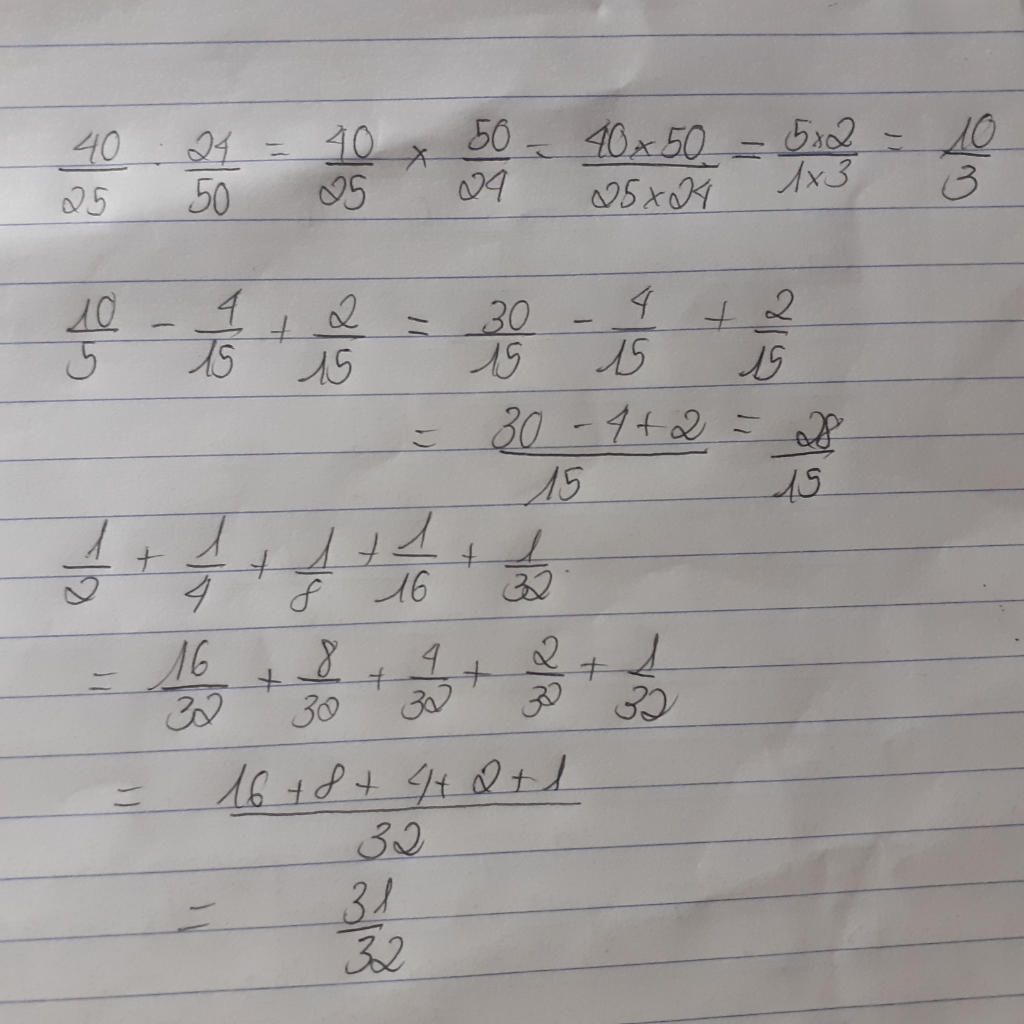 40/25 : 24/50 = 40/25 × 50/24 = 40×50/25×24 = 5×2/1×3 = 10/3
10/5 - 4/15 + 2/15 = 30/15 - 4/15 + 2/15
= 30-4+2/15 = 28/15
1/2 + 1/4 + 1/8 + 1/16 + 1/32
= 16/32 + 8/32 + 4/32 + 2/32 + 1/32
= 16+8+4+2+1/32
= 31/32